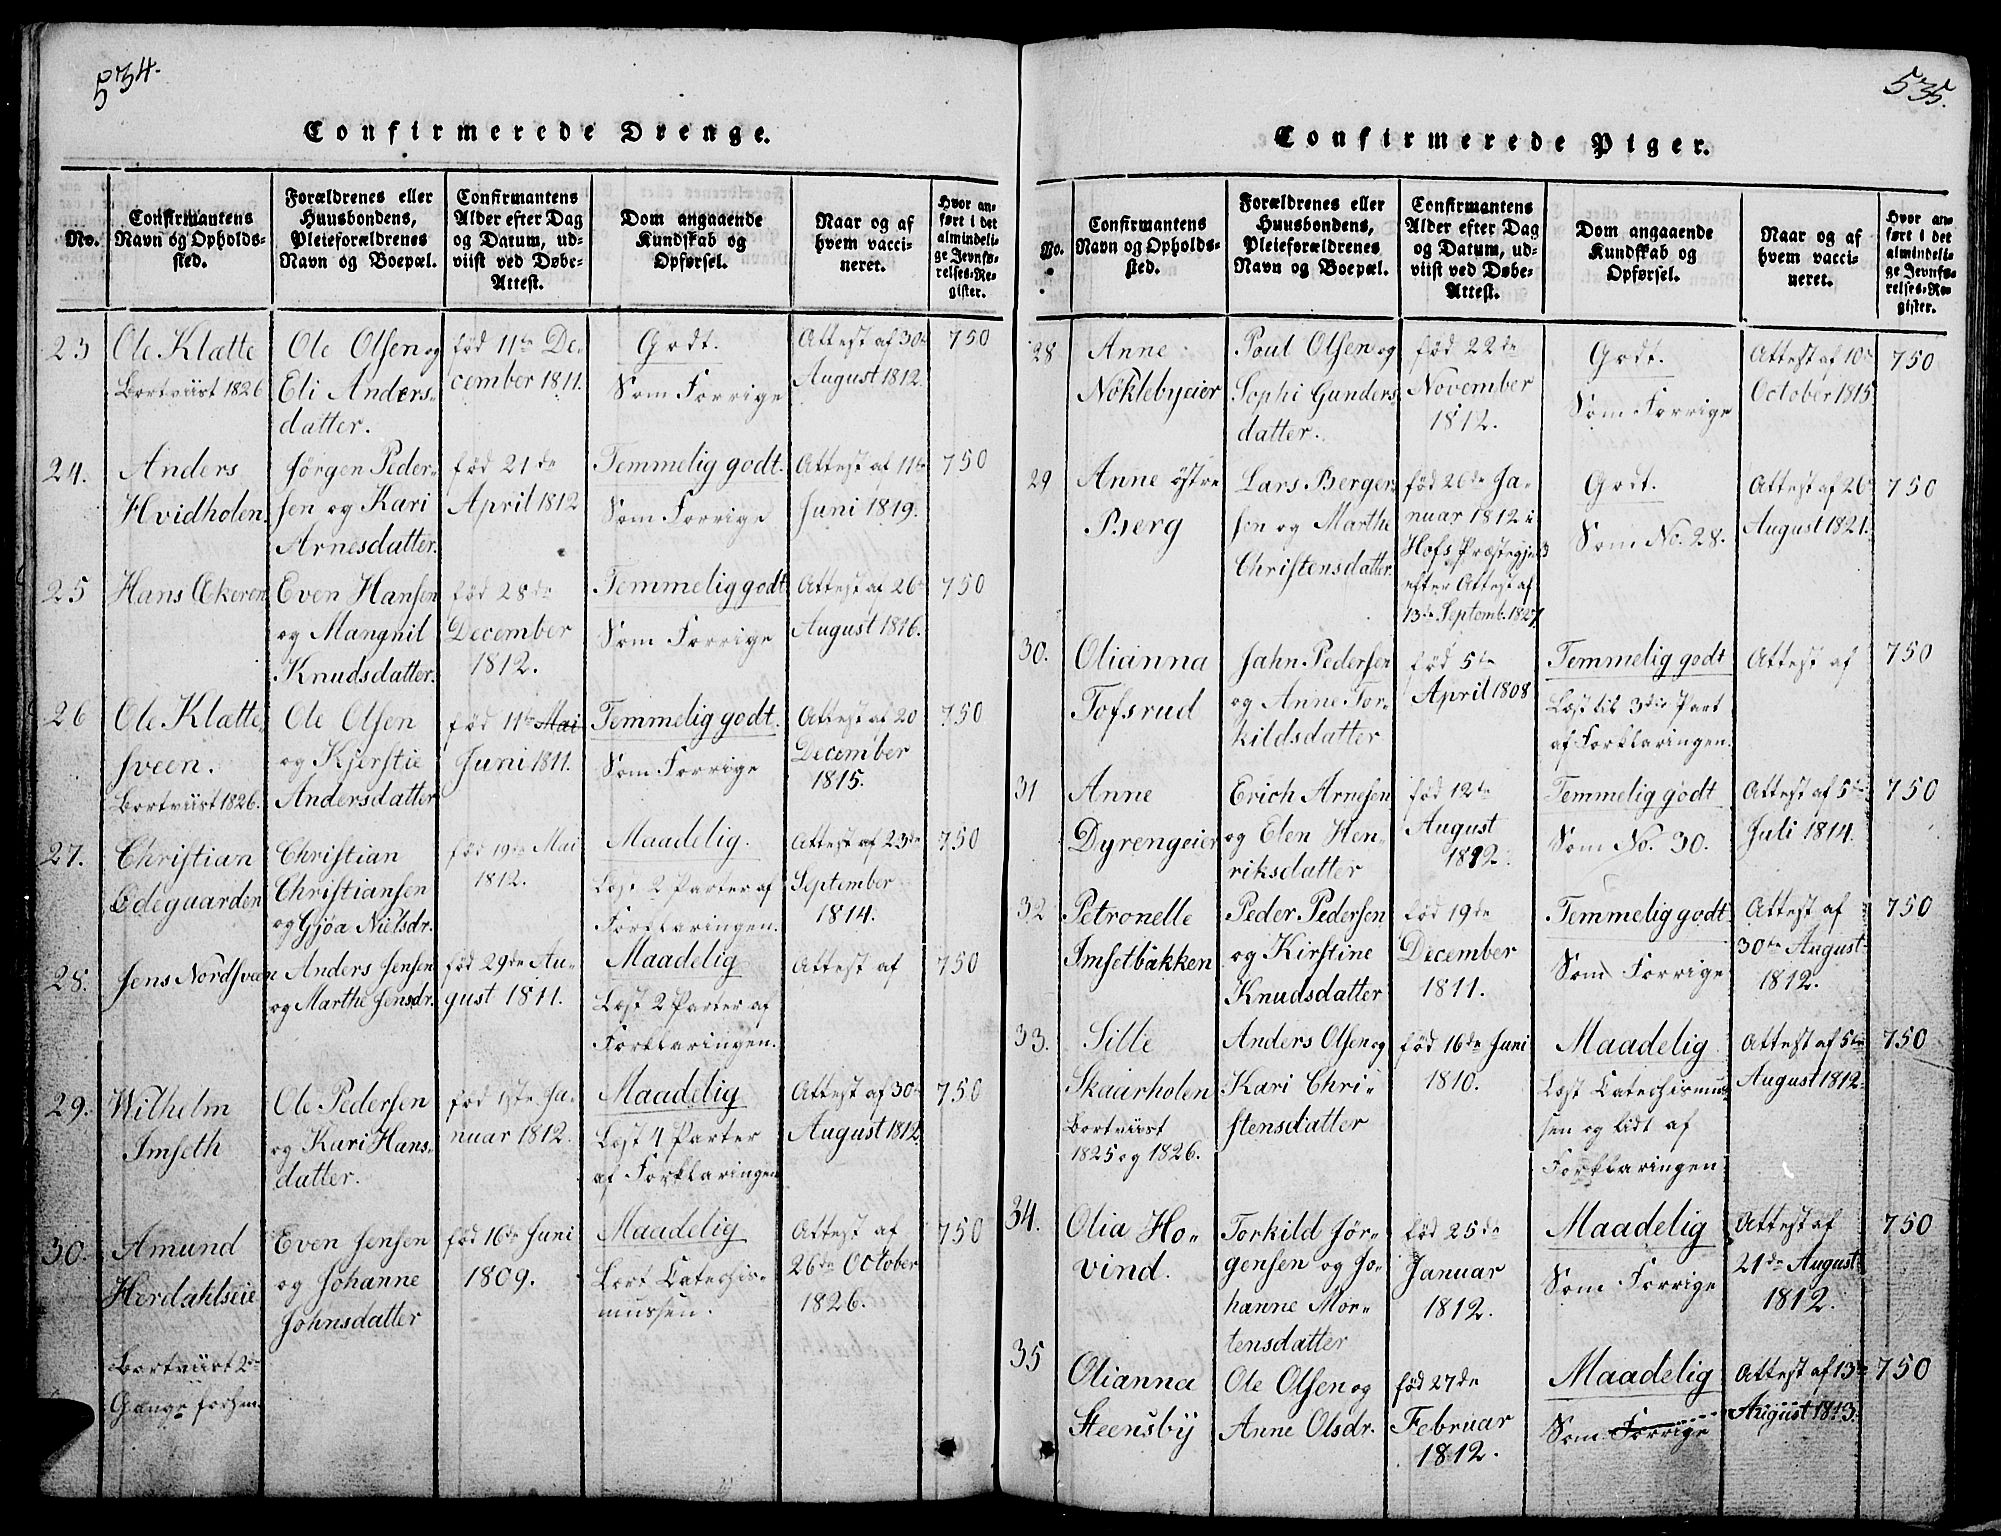 534.
Confirmerede Drenge.
No.
Confirmantens
Navn og Opholds-
sted.
Forældrenes eller
Huusbondens,
Pleieforældrenes
Navn og Boepæl.
Confirmantens
Alder efter Dag
og Datum, ud-
viist ved Døbe-
Attest.
Dom angaaende
Kundskab og
Opførsel.
Naar og af
hvem vacci-
neret.
Hvor an-
ført i det
almindeli-
ge Jevnfø-
relses-Re-
gister.
23
Ole Klætte
Bortviist 1826
Ole Olsen og
Eli Anders-
datter.
fød 11te De-
cember 1811.
Godt.
Som Forrige
Attest af 30te
August 1812.
750
24.
Anders
Hvidholen.
Jørgen Peder-
sen og Kari
Arnesdatter.
fød 21de
April 1812
Temmelig godt.
Som Forrige
Attest af 11te
Juni 1819.
750
25
Hans Ækeren
Even Hansen
og Mangnil
Knudsdatter.
fød 28de
December
1812.
Temmelig godt
Som Forrige
Attest af 26te
August 1816.
750
26
Ole Klætte-
sveen.
Bortviist 1826.
Ole Olsen
og Kjerstie
Andersdatter
fød 11te Mai
Juni 1811.
Temmelig godt.
Som Forrige
Attest af 20
December
1815.
750
27.
Christian
Ødeguarden
Christian
Christiansen
og Gjøa Nielsdr.
fød 19de Mai
1812.
Maadelig.
Læst 2 Parter af
Forklaringen.
Attest af 23de
September
1814.
750
28.
Jens Nordsveen
Anders Jensen
og Marthe Jensdr.
fød 29de Au-
gust 1811.
Maadelig
Læst 2 Parter af
Forklaringen.
Attest af
750
29.
Wilhelm
Imseth
Ole Pedersen
og Kari Hans-
datter.
fød 1ste Ja-
nuar 1812.
Maadelig
Læst 4 Parter
af Forklaringen
Attest af 30te
August 1812
750
30.
Amund
Herdahlseie
Bortviist 2de
Gange forhen.
Even Jensen
og Johanne
Johnsdatter
fød 16de Juni
1809.
Maadelig
Lært Catechis-
mussen.
Attest af
26de October
1826.
750
535.
Confirmerede Piger.
No.
Confirmantens
Navn og Opholds-
sted.
Forældrenes eller
Huusbondens,
Pleieforældrenes
Navn og Boepæl.
Confirmantens
Alder efter Dag
og Datum, ud-
viist ved Døbe-
Attest.
Dom angaaende
Kundskab og
Opførsel.
Naar og af
hvem vacci-
neret.
Hvor an-
ført i det
almindeli-
ge Jevnfø-
relses-Re-
gister.
28
Anne
Nöklebyeier
Poul Olsen og
Sophi Gunders-
datter.
fød 22de
November
1812.
Godt.
Som Forrige
Attest af 10de
October 1815
750
29
Anne østre
Berg
Lars Berger-
sen og Marthe
Christensdatter
fød 26de Ja-
nuar 1812 i
Hofs Præstegjeld
efter Attest af
13de Septemb. 1827
Godt.
Som No. 28.
Attest af 26de
August 1821.
750
30.
Olianna
Tofsrud
Jahn Pedersen
og Anne Tor-
kildsdatter
fød 5te
April 1808
Temmelig godt
Læst til 3die Part
af Forklaringen.
Attest af
750
31
Anne
Dyrengeier
Erich Arnesen
og Elen Hen-
riksdatter
fød 12te
August
1812.
Temmelig godt
Som No. 30.
Attest af 5te
Juli 1814.
750
32
Petronelle
Imsetbakken
Peder Pedersen
og Kirstine
Knudsdatter
fød 19de
December
1811.
Temmelig godt
Som Forrige
Attest af
30te August
1812.
750
33.
Sille
Skaarholen
Bortviist
1825 og 1826.
Anders Olsen og
Kari Chri-
stensdatter
fød 16de Juni
1810.
Maadelig
Læst Catechismus-
sen og lidt af
Forklaringen
Attest af 5te
August 1812.
750
34.
Olia Ho-
vind.
Torkild Jør-
gensen og Jo-
hanne Mor-
tensdatter
fød 25de
Januar
1812.
Maadelig
Som Forrige
Attest af
21de August
1812.
750
35
Olianna
Steensby
Ole Olsen og
Anne Olsdr.
fød 27de
Februar
1812.
Maadelig
Som Forrige
Attest af 13de
August 1813.
750